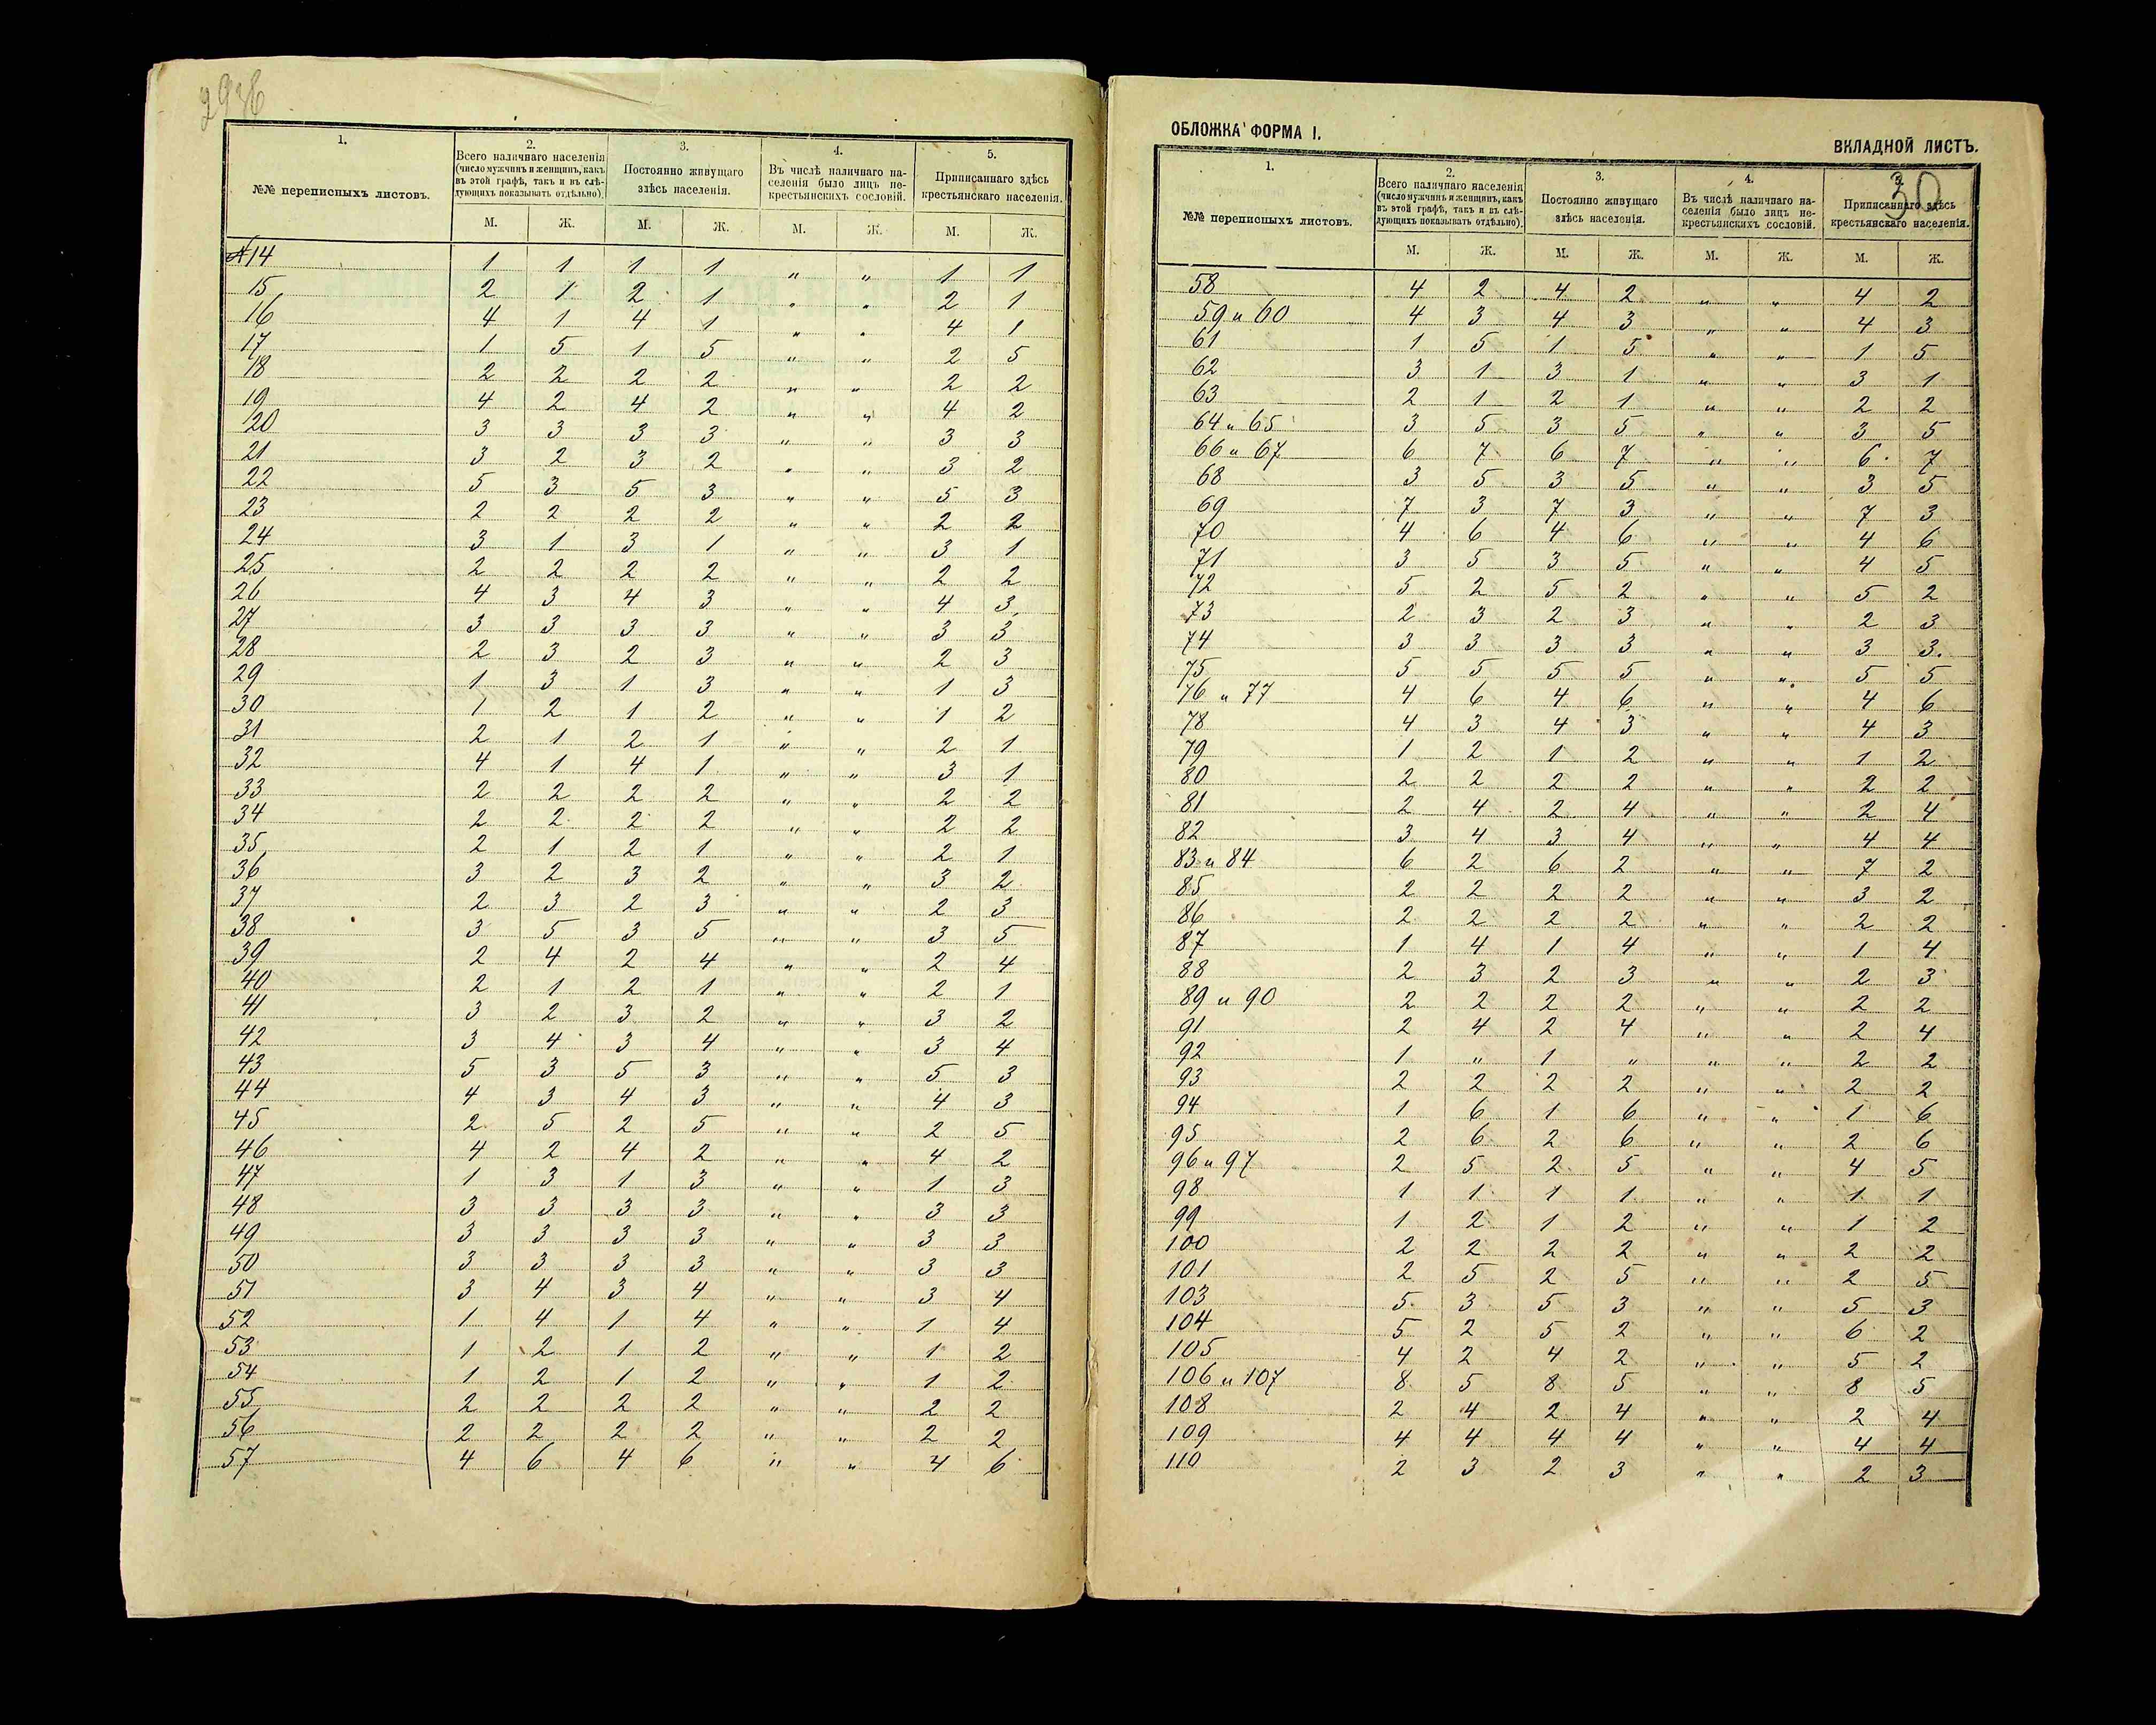 293б
1.
2.
3.
4.
5.
№№ переписныхъ листовъ.
Всего наличнаго населенія
(число мужчинъ и женщинъ, какъ
въ этой графѣ, такъ и въ слѣ-
дующихъ показывать отдѣльно).
Постоянно живущаго
здѣсь населенія.
Въ числѣ наличнаго на-
селенія было лицъ не-
крестьянскихъ сословій.
Приписаннаго здѣсь
крестьянскаго населенія.
М. Ж. М. Ж. М. Ж. М. Ж.
№14 1 1 1 1 " " 1 1
15 2 1 2 1 " " 2 1
16 4 1 4 1 " " 4 1
17 1 5 1 5 " " 2 5
18 2 2 2 2 " " 2 2
19 4 2 4 2 " " 4 2
20 3 3 3 3 " " 3 3
21 3 2 3 2 " " 3 2
22 5 3 5 3 " " 5 3
23 2 2 2 2 " " 2 2
24 3 1 3 1 " " 3 1
25 2 2 2 2 " " 2 2
26 4 3 4 3 " " 4 3
27 3 3 3 3 " " 3 3
28 2 3 2 3 " " 2 3
29 1 3 1 3 " " 1 3
30 1 2 1 2 " " 1 2
31 2 1 2 1 " " 2 1
32 4 1 4 1 " " 3 1
33 2 2 2 2 " " 2 2
34 2 2 2 2 " " 2 2
35 2 1 2 1 " " 2 1
36 3 2 3 2 " " 3 2
37 2 3 2 3 " " 2 3
38 3 5 3 5 " " 3 5
39 2 4 2 4 " " 2 4
40 2 1 2 1 " " 2 1
41 3 2 3 2 " " 3 2
42 3 4 3 4 " " 3 4
43 5 3 5 3 " " 5 3
44 4 3 4 3 " " 4 3
45 2 5 2 5 " " 2 5
46 4 2 4 2 " " 4 2
47 1 3 1 3 " " 1 3
48 3 3 3 3 " " 3 3
49 3 3 3 3 " " 3 3
50 3 3 3 3 " " 3 3
51 3 4 3 4 " " 3 4
52 1 4 1 4 " " 1 4
53 1 2 1 2 " " 1 2
54 1 2 1 2 " " 1 2
55 2 2 2 2 " " 2 2
56 2 2 2 2 " " 2 2
57 4 6 4 6 " " 4 6
ОБЛОЖКА ФОРМА I.
ВКЛАДНОЙ ЛИСТЪ.
30
1.
2.
3.
4.
5.
№№ переписныхъ листовъ.
Всего наличнаго населенія
(число мужчинъ и женщинъ, какъ
въ этой графѣ, такъ и въ слѣ-
дующихъ показывать отдѣльно).
Постоянно живущаго
здѣсь населенія.
Въ числѣ наличнаго на-
селенія было лицъ не-
крестьянскихъ сословій.
Приписаннаго здѣсь
крестьянскаго населенія.
М. Ж. М. Ж. М. Ж. М. Ж.
58 4 2 4 2 " " 4 2
59 и 60 4 3 4 3 " " 4 3
61 1 5 1 5 " " 1 5
62 3 1 3 1 " " 3 1
63 2 1 2 1 " " 2 2
64 и 65 3 5 3 5 " " 3 5
66 и 67 6 7 6 7 " " 6 7
68 3 5 3 5 " " 3 5
69 7 3 7 3 " " 7 3
70 4 6 4 6 " " 4 6
71 3 5 3 5 " " 4 5
72 5 2 5 2 " " 5 2
73 2 3 2 3 " " 2 3
74 3 3 3 3 " " 3 3
75 5 5 5 5 " " 5 5
76 и 77 4 6 4 6 " " 4 6
78 4 3 4 3 " " 4 3
79 1 2 1 2 " " 1 2
80 2 2 2 2 " " 2 2
81 2 4 2 4 " " 2 4
82 3 4 3 4 " " 4 4
83 и 84 6 2 6 2 " " 7 2
85 2 2 2 2 " " 3 2
86 2 2 2 2 " " 2 2
87 1 4 1 4 " " 1 4
88 2 3 2 3 " " 2 3
89 и 90 2 2 2 2 " " 2 2
91 2 4 2 4 " " 2 4
92 1 " 1 " " " 2 2
93 2 2 2 2 " " 2 2
94 1 6 1 6 " " 1 6
95 2 6 2 6 " " 2 6
96 и 97 2 5 2 5 " " 4 5
98 1 1 1 1 " " 1 1
99 1 2 1 2 " " 1 2
100 2 2 2 2 " " 2 2
101 2 5 2 5 " " 2 5
103 5 3 5 3 " " 5 3
104 5 2 5 2 " " 6 2
105 4 2 4 2 " " 5 2
106 и 107 8 5 8 5 " " 8 5
108 2 4 2 4 " " 2 4
109 4 4 4 4 " " 4 4
110 2 3 2 3 " " 2 3